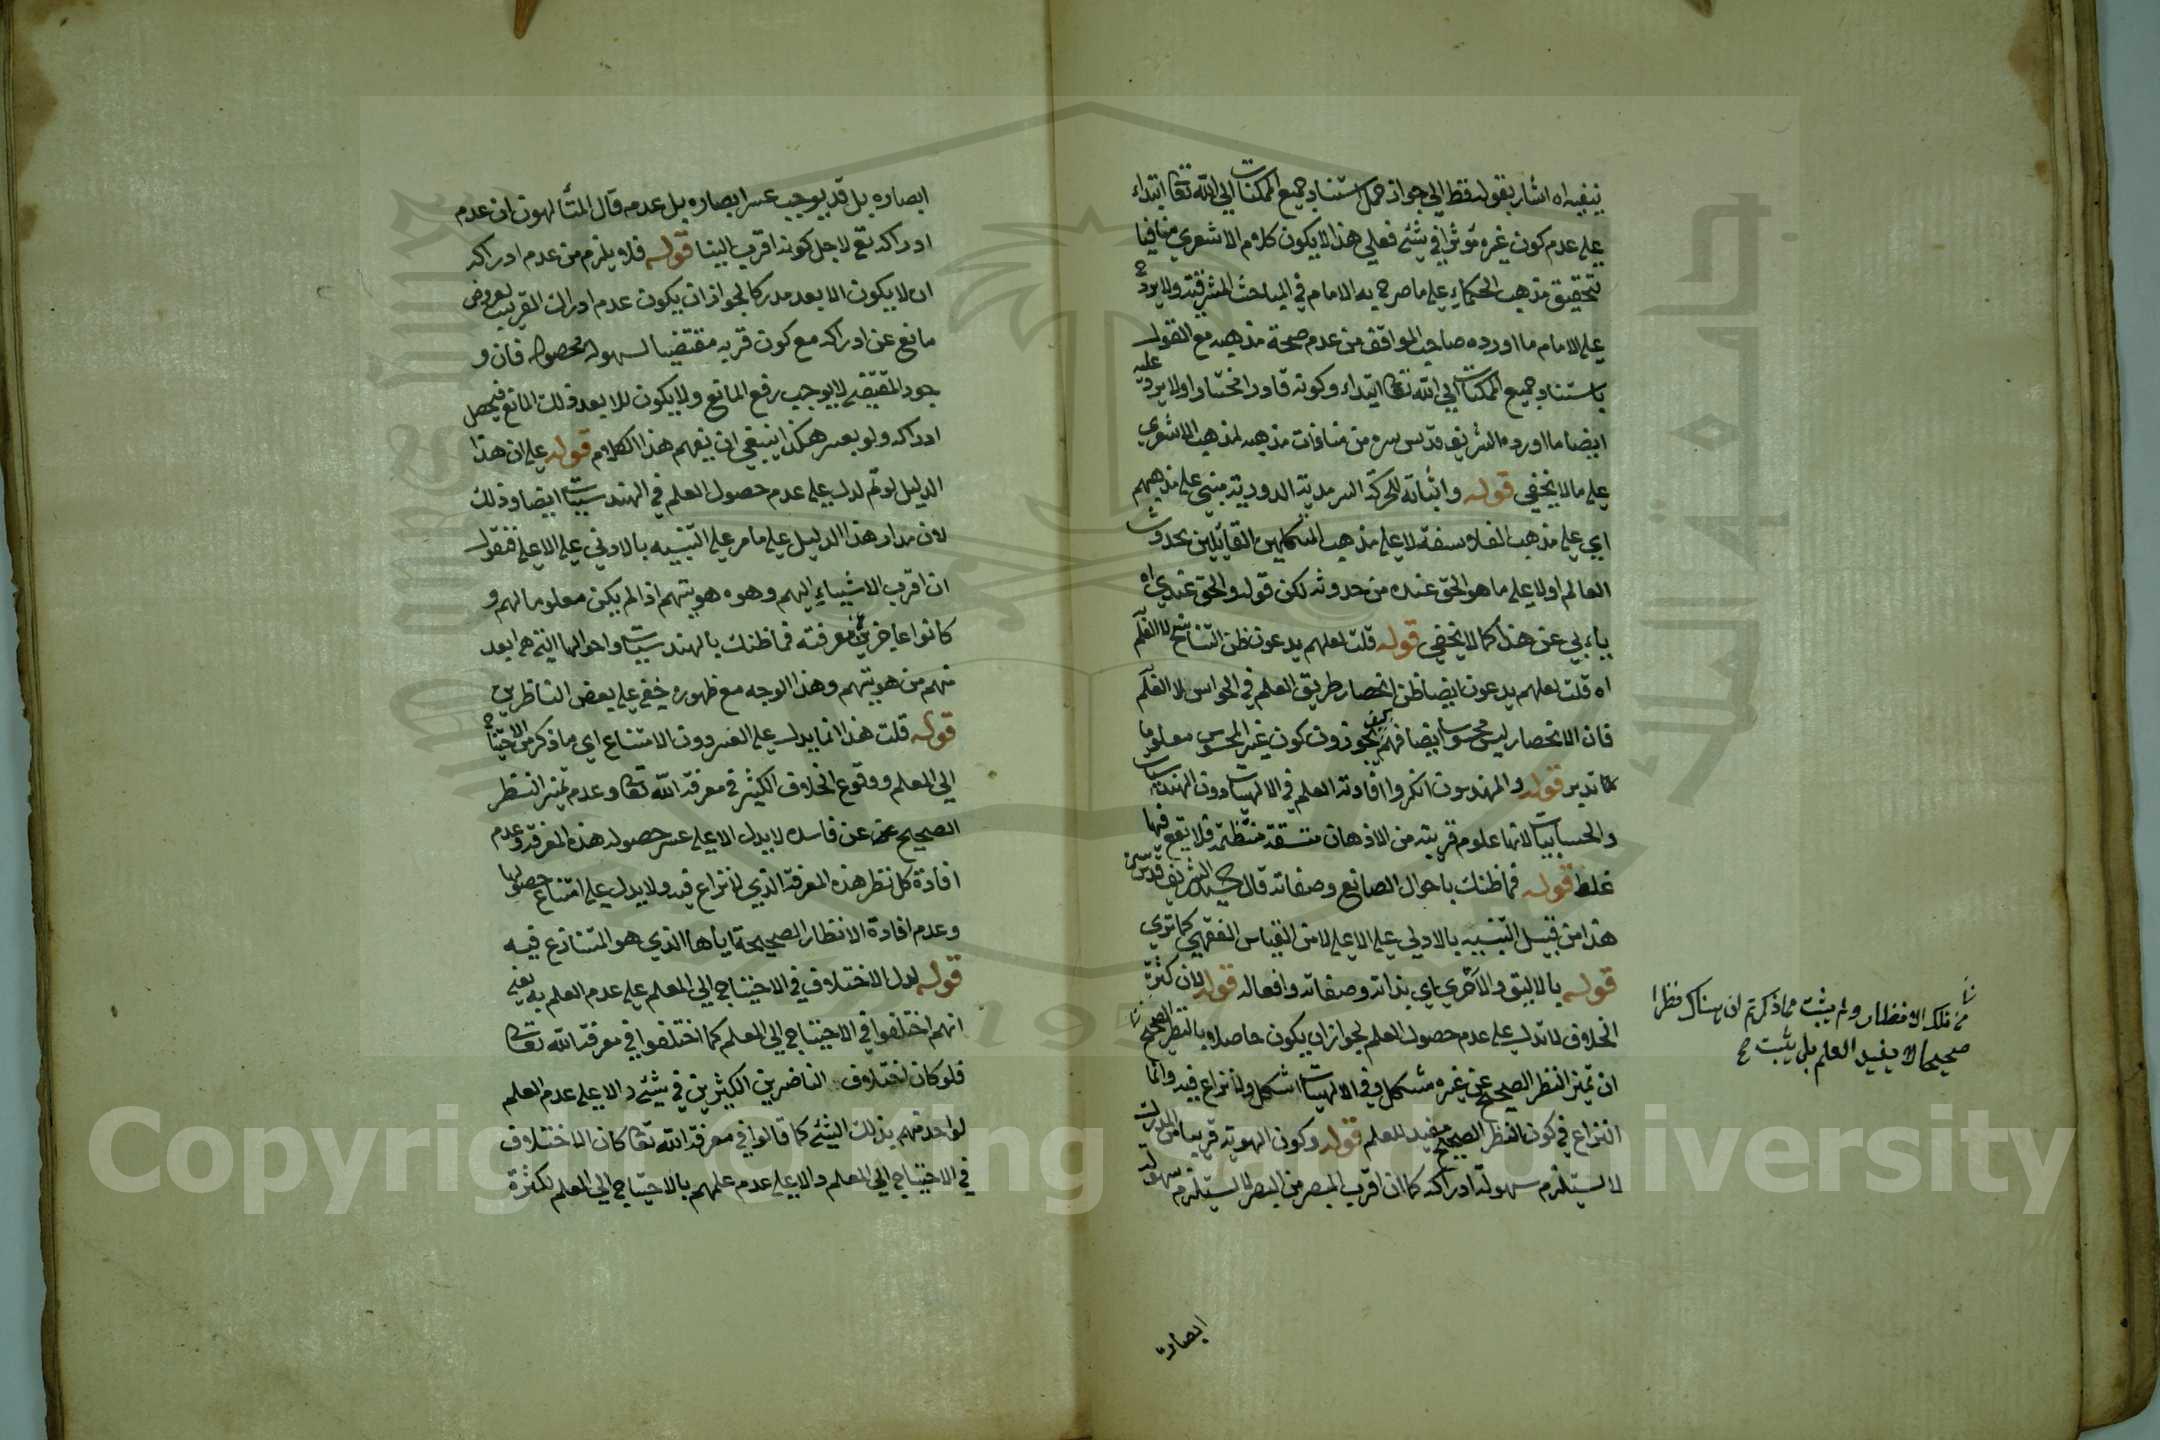 ينفيه اه اشار بقوله فقط الي جواز حمل استناد جميع الممكنات الي الله تعا ابتداء
علي عدم كون غيره مؤثرا في شئ فعلي هذا لا يكون كلام الاشعري منافيا
لتحقيق مذهب الحكماء علي ما صرح به الامام في المباحث المشرقية ولا يرد ح
علي الامام ما اورده صاحب المواقف من عدم صحة مذهبه مع القول
باستناد جميع الممكنات الي الله تعا ابتداء وكونه قادرا مختارا ولا يرد عليه
ايضا ما اورده الشريف قدس سره من منافات مذهبه لمذهب الاشعري
علي ما لا يخفي قوله واثباته للحركة السرمدية الدورية مبني علي مذهبهم
اي علي مذهب الفلاسفة لا علي مذهب المتكلمين القائلين بحدوث
العالم اولا علي ما هو الحق عنده من حدوثه لكن قوله والحق عندي اه
يابي عن هذا كما لا يخفي قوله قلت لعلهم يدعون ظن التناسخ لا العلم
اه قلت لعلهم يدعون ايضا ظن انحصار طريق العلم في الحواس لا العلم
فان الانحصار ليس محسوسا ايضا فهم كيف يجوزون كون غير المحسوس معلوما
تدبر قوله والمهندسون انكروا افادته العلم في الالهيات دون الهندسيات
والحسابيات لانها علوم قريبة من الاذهان متسقة منتظمة فلا يقع فيها
غلط قوله فما ظنك باحوال الصانع وصفاته قال السيد الشريف قدس سره
هذا من قبيل التنبيه بالادني علي الاعلي لا من القياس الفقهي كما تري
قوله بالاليق والاحري اي بذاته وصفاته وافعاله قوله لان كثرة
الخلاف لا تدل علي عدم حصول العلم لجواز ان يكون حاصلا بالنظر الصحيح
ان تميز النظر الصحيح عن غيره مشكل وفي الالهيات اشكل ولا نزاع فيه وانما
النزاع في كون النظر الصحيح مفيد للعلم قوله وكون الهوية قريبا من المدرك
لا يستلزم سهولة ادراكه كما ان اقرب المبصر من البصر لا يستلزم سهولة
ابصاره
من تلك الانظار ولم يثبت مما ذكرتم ان هناك نظرا
صحيحا لا يفيد العلم بل يثبت صح
ابصاره بل قد يوجب عسر ابصاره بل عدمه قال المتألهون ان عدم
ادراكه تع لاجل كونه اقرب الينا قوله فلا يلزم من عدم ادراكه
ان لا يكون الابعد مدركا لجواز ان يكون عدم ادراك القريب بعروض
مانع عن ادراكه مع كون قربه مقتضيا لسهولة حصوله فان و
جود المقتضي لا يوجب رفع المانع ولا يكون للابعد ذلك المانع فيحصل
ادراكه ولو بعسر هكذا ينبغي ان يفهم هذا الكلام قوله علي ان هذا
الدليل لو تم لدل علي عدم حصول العلم في الهندسيات ايضا وذلك
لان مدار هذا الدليل علي ما مر علي التنبيه بالادني علي الاعلي فنقول
ان اقرب الاشياء اليهم وهوه هويتهم اذا لم يكن معلوما لهم و
كانوا عاجزين عن معرفته فما ظنك بالهندسيات واحوالها التي هي ابعد
منهم من هويتهم وهذا الوجه مع ظهوره خفي علي بعض الناظرين
قوله قلت هذا انما يدل علي العسر دون الامتناع اي ما ذكر من الاحتياج
الي المعلم ووقوع الخلاف الكثير في معرفة الله تعا وعدم تميز النظر
الصحيح عن فاسده لا يدل الا علي عسر حصول هذه المعرفة وعدم
افادة كل نظر هذه المعرفة الذي لا نزاع فيه ولا يدل علي امتناع حصولها
وعدم افادة الانظار الصحيحة اياها الذي هو المتنازع فيه
قوله لدل الاختلاف في الاحتياج الي المعلم علي عدم العلم به يعني
انهم اختلفوا في الاحتياج الي المعلم كما اختلفوا في معرفة الله تعا
فلو كان اختلاف الناضرين الكثيرين في شئ دالا علي عدم العلم
لواحد منهم بذلك الشئ كما قالوا في معرفة الله تعا كان الاختلاف
في الاحتياج الي المعلم دالا علي عدم علمهم بالاحتياج الي المعلم لكثرة
Copyright © King Saud University
1957